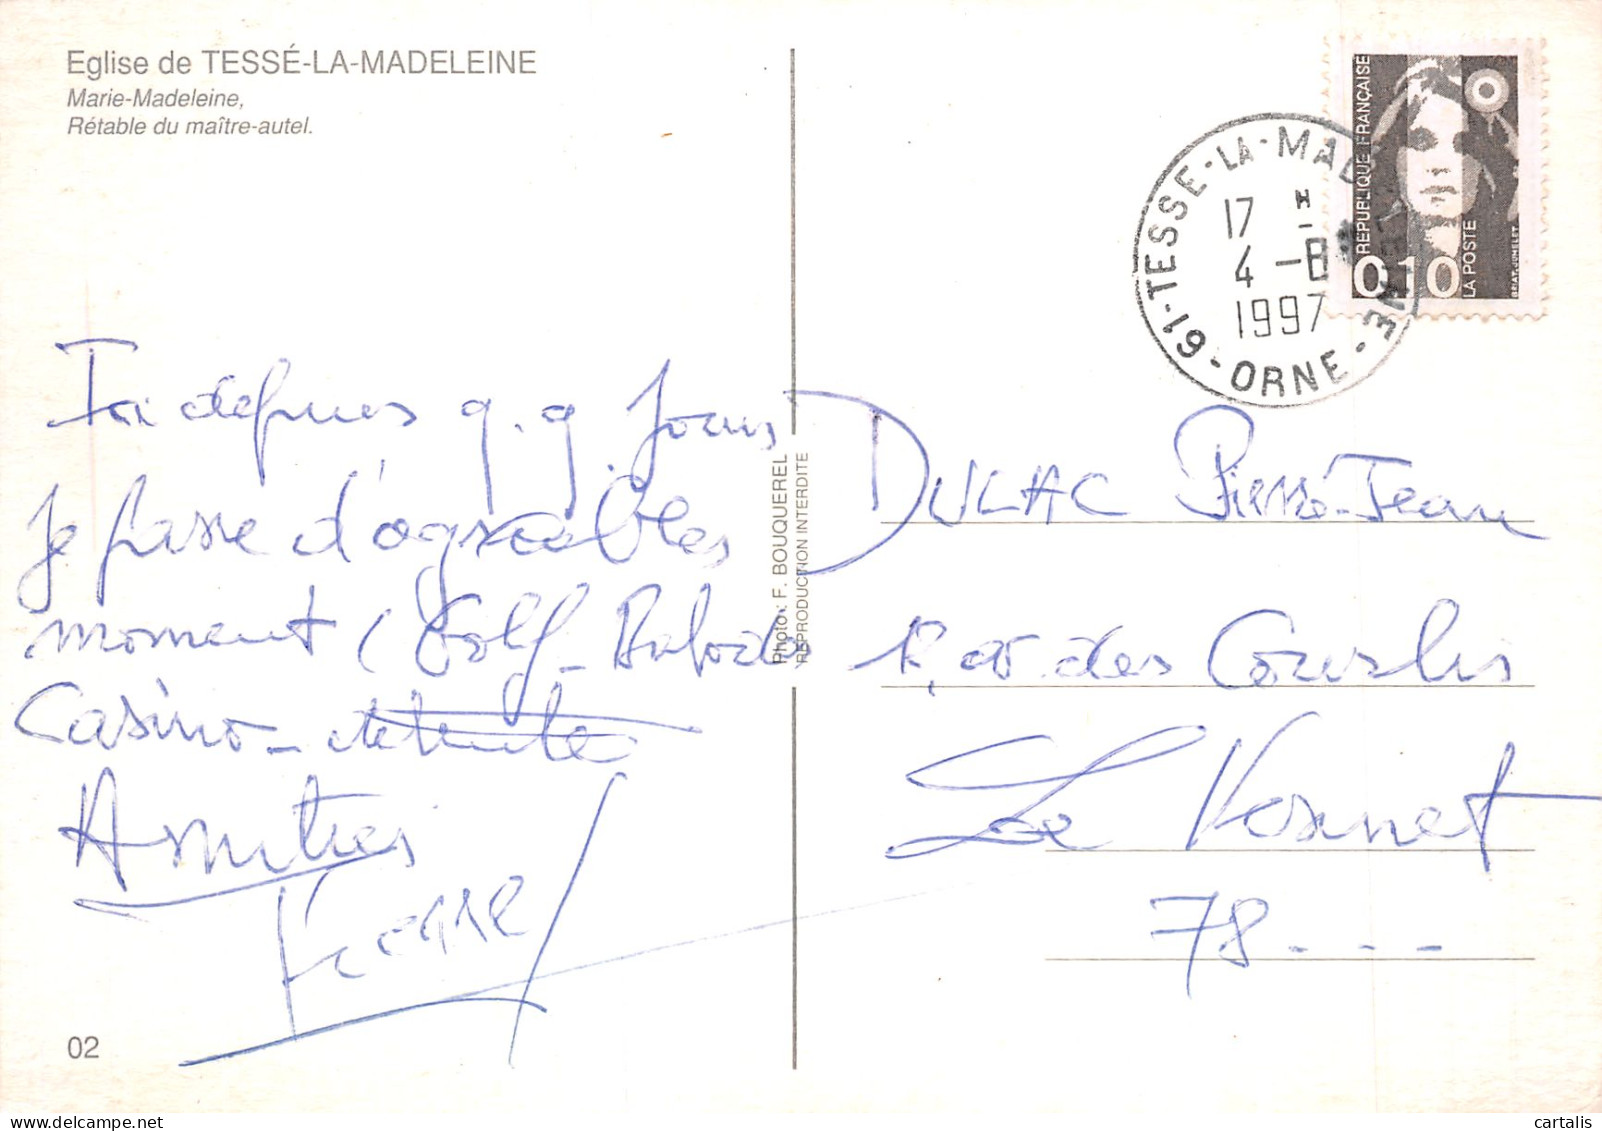 Eglise de TESSÉ-LA-MADELEINE
Marie-Madeleine,
Rétable du maître-autel.
Ici depuis q.q. jours
Je passe d'agréables
moment ( Golf - Balades
Casino - détente
Amitiés
Pierre
02
Photo : F. BOUQUEREL
REPRODUCTION INTERDITE
61 - TESSE-LA-MADELEINE
17 H
4 - 8
1997
ORNE
RÉPUBLIQUE FRANÇAISE
0,10
LA POSTE
BRIAT-JUMELET
DULAC Pierre-Jean
des Courlis
Le Vesinet
78 - - -
cartalis
delcampe.net